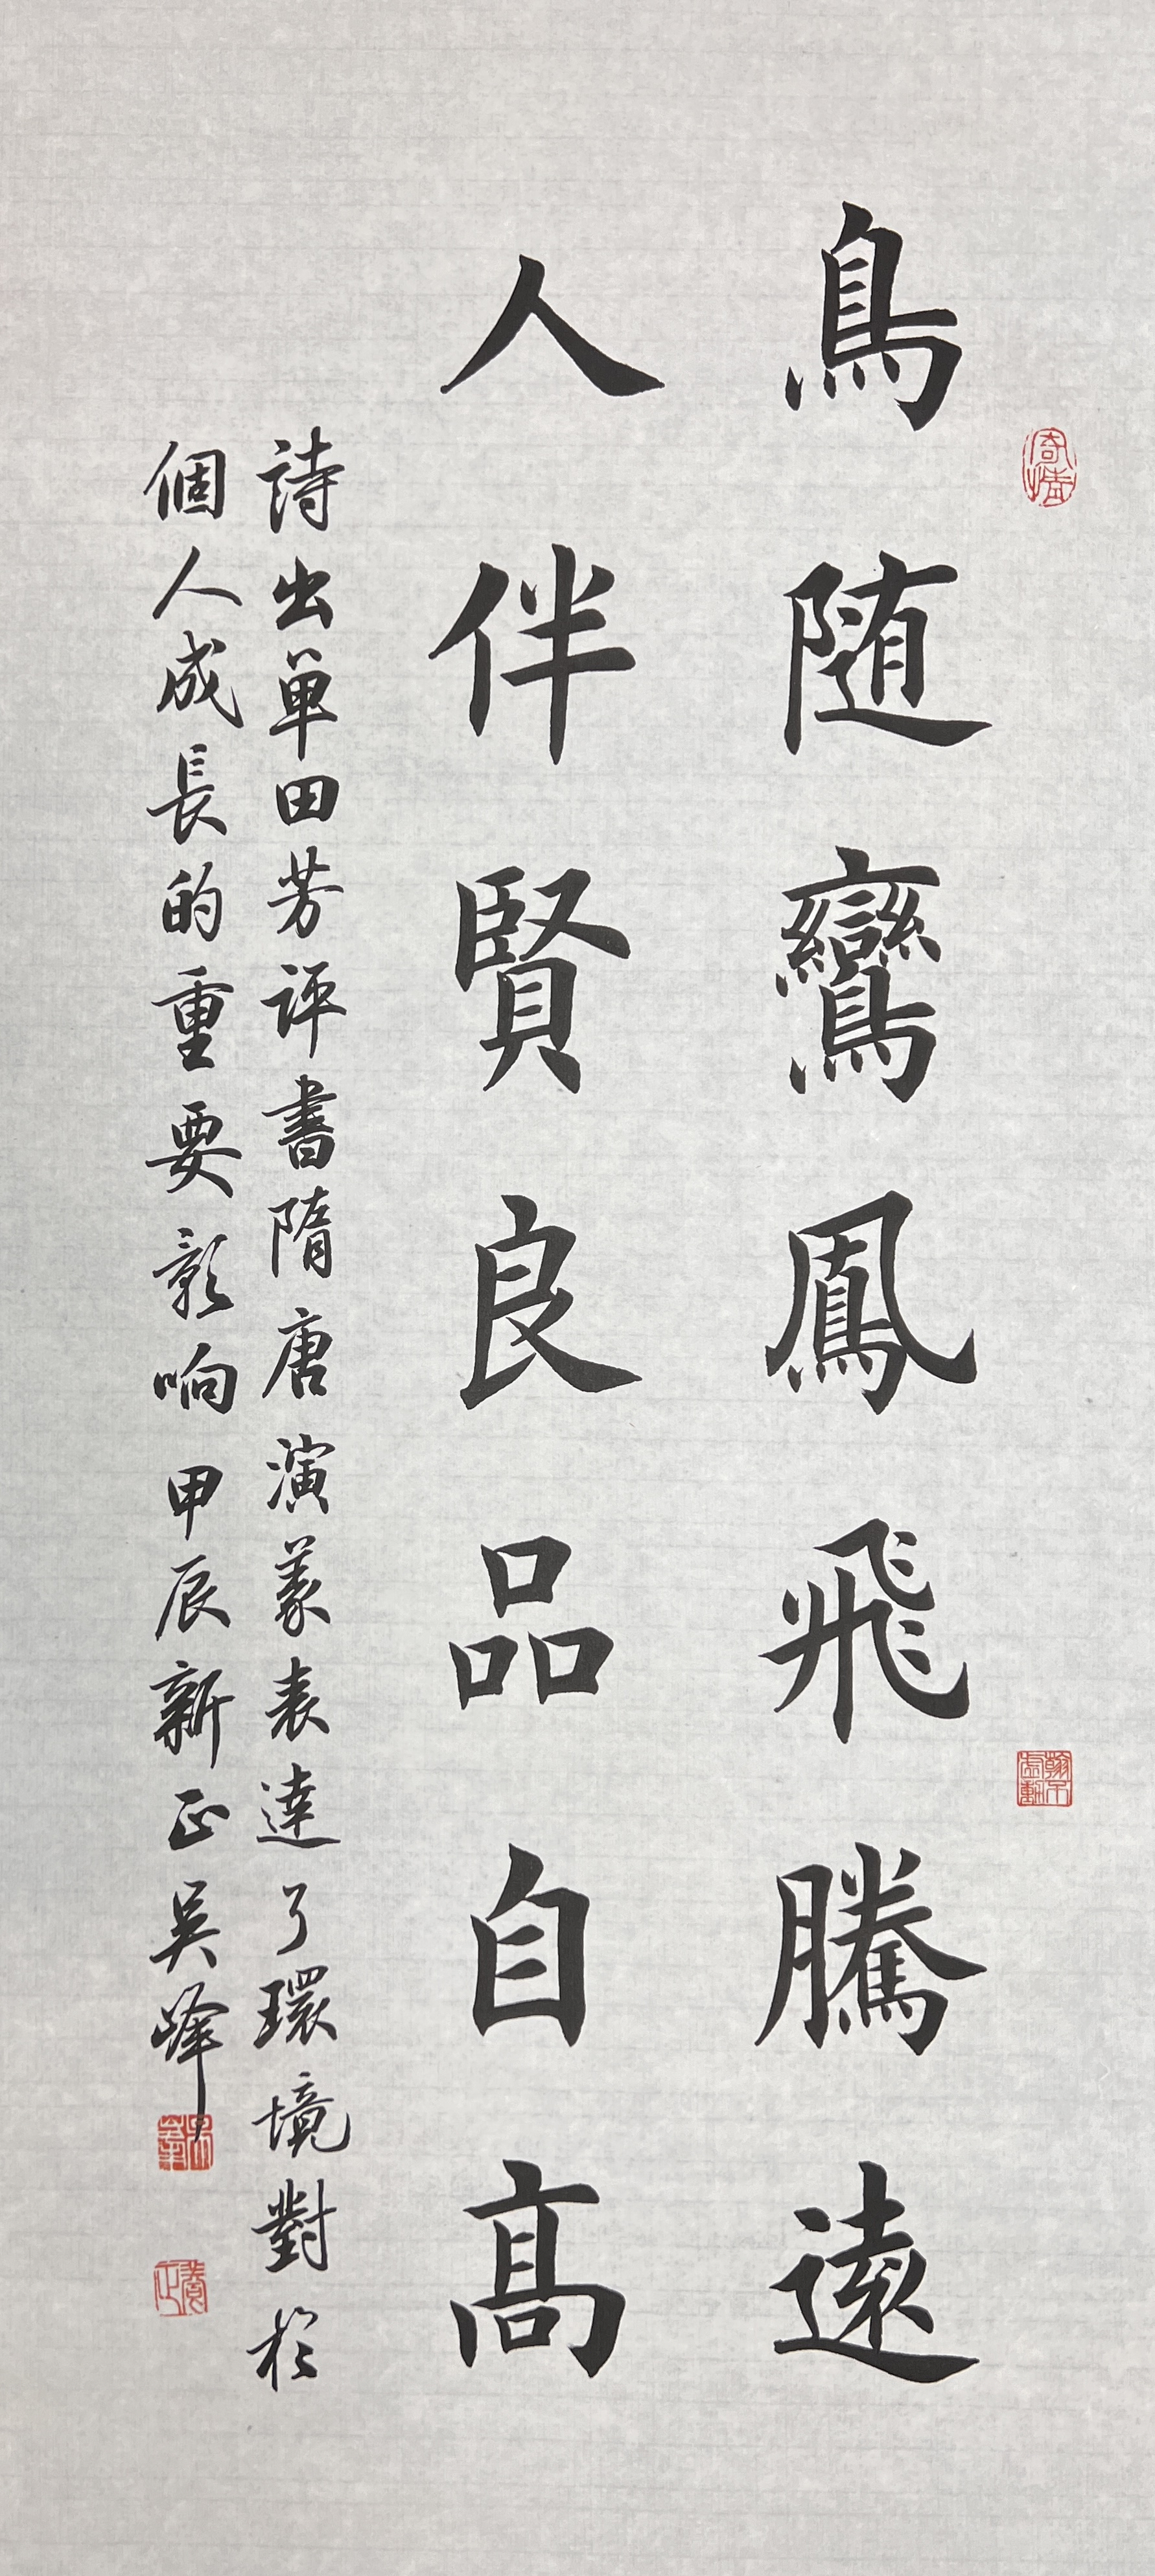 鳥随鸞鳳飛騰遠
人伴賢良品自高
詩出单田芳评書隋唐演義表達了環境對於
個人成長的重要影响甲辰新正吴峰